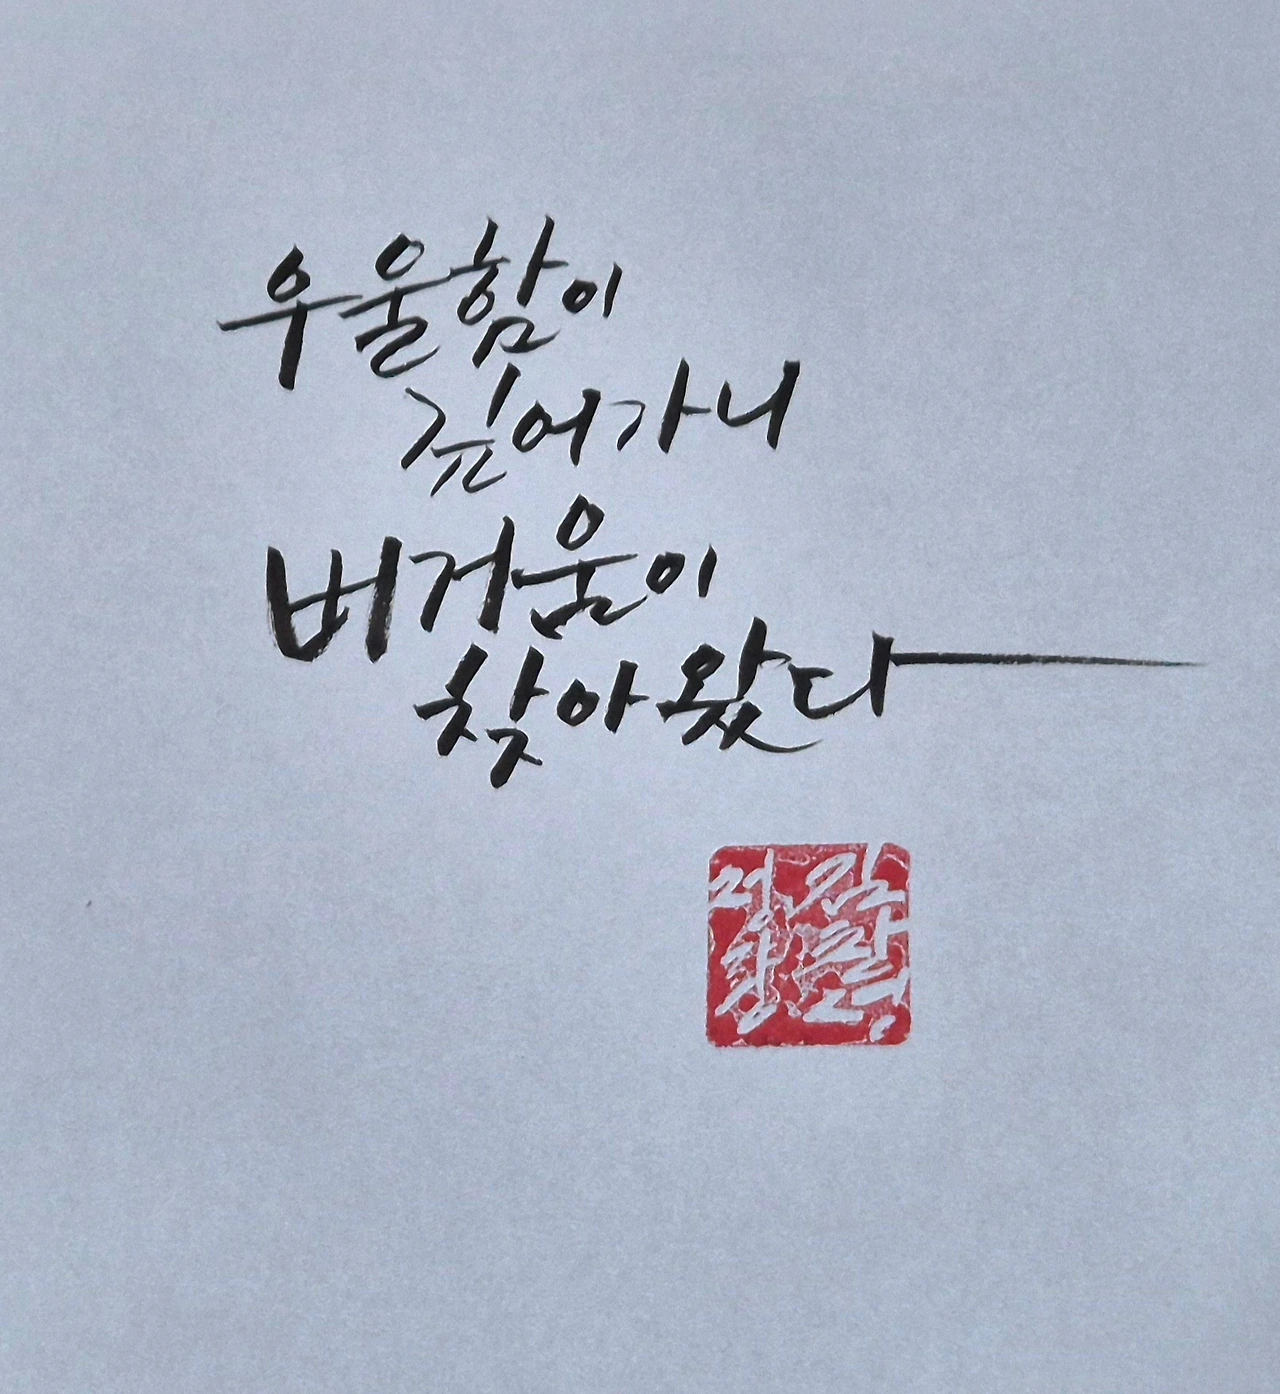 우울함이
깊어가니
버거움이
찾아왔다